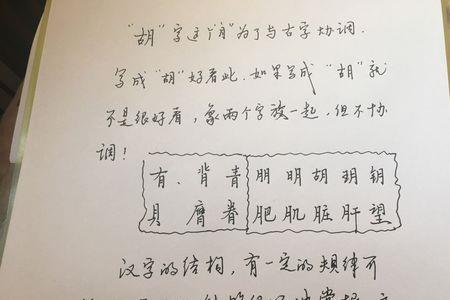 "胡"字这个"月"为了与古字协调.
写成"胡"好看些.如果写成"胡"就
不是很好看,象两个字放一起,但不协
调!
有、背青 朋明胡玥钥
具膺眷 肥肌脏肝望
汉字的结构,有一定的规律不